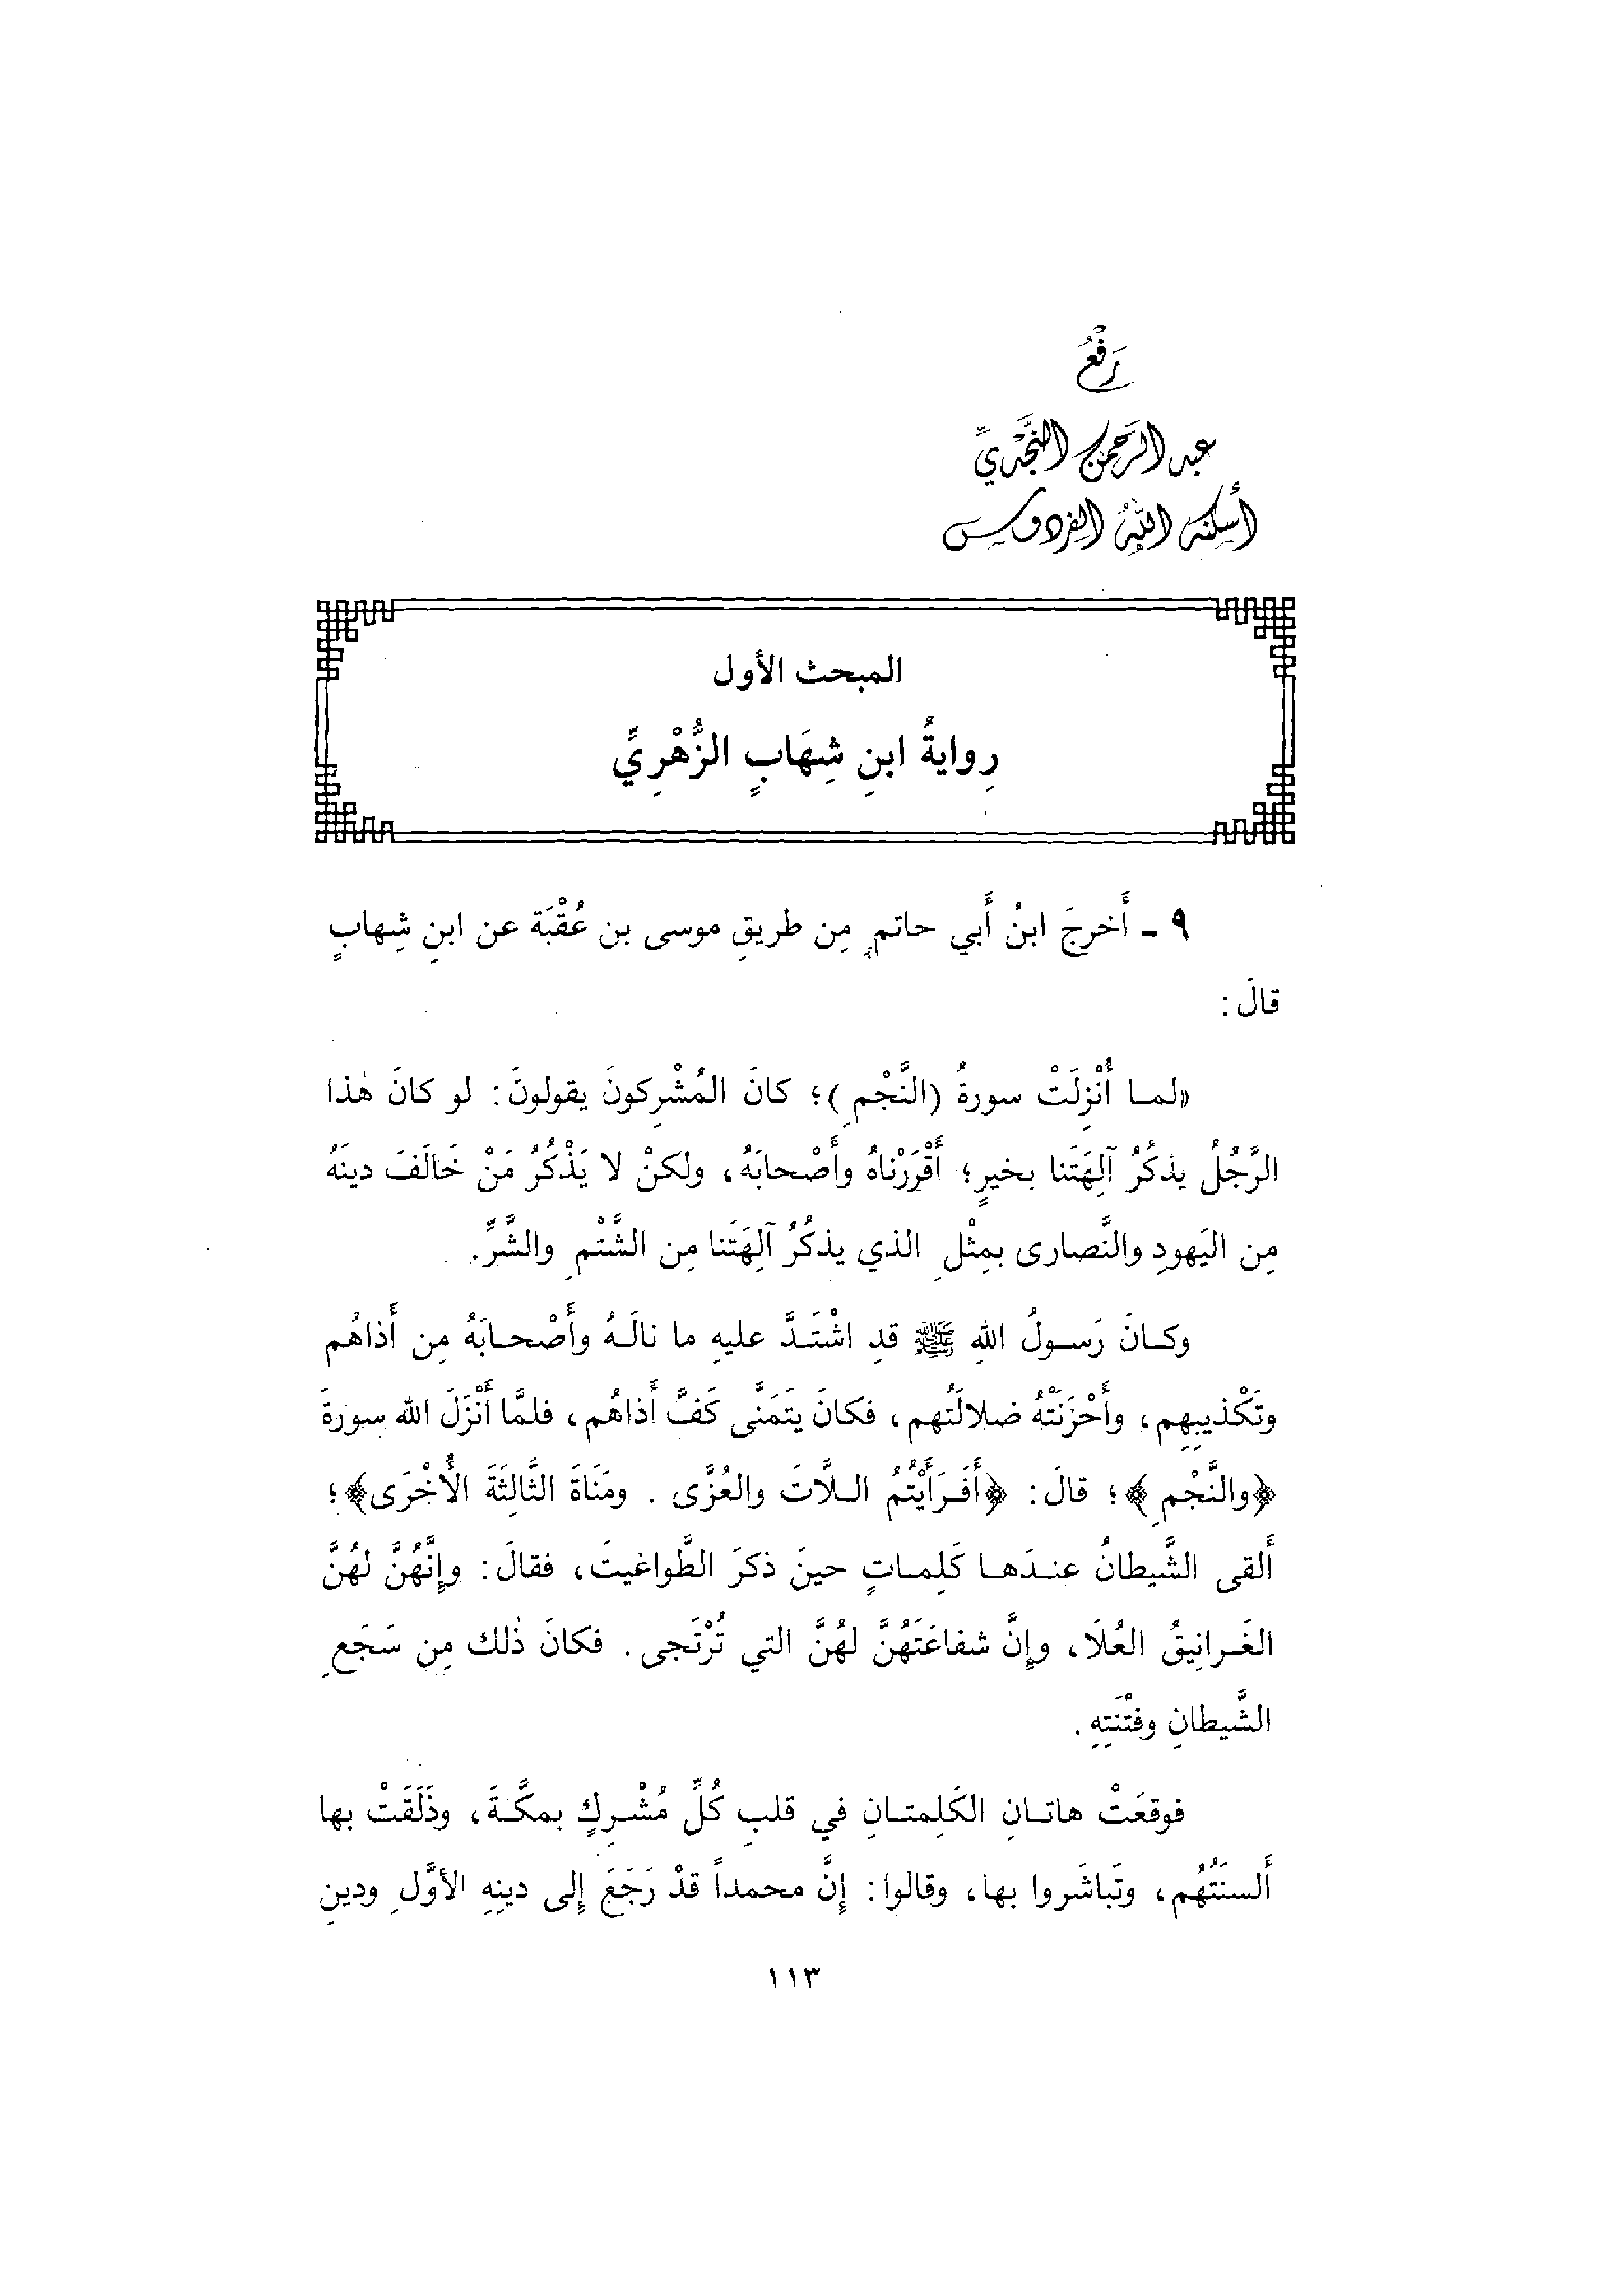 رَفْعُ
عبد الرَّحمن النَّجْديِّ
أسكنه اللهُ الفردوس
المبحث الأول
رِوايةُ ابنِ شِهَابٍ الزُّهْرِيِّ
٩ ـ أَخرجَ ابنُ أَبي حاتمٍ مِن طريقِ موسى بن عُقْبَة عن ابنِ شِهابٍ
قالَ:
«لمـا أُنْزِلَتْ سورةُ (النَّجْمِ)؛ كانَ المُشْرِكونَ يقولونَ: لو كانَ هٰذا
الرَّجُلُ يذكُرُ آلِهَتَنا بخيرٍ؛ أَقْرَرْناهُ وأَصْحابَهُ، ولكنْ لا يَذْكُرُ مَنْ خَالَفَ دينَهُ
مِن اليَهودِ والنَّصارى بمِثْلِ الذي يذكُرُ آلِهَتَنا مِن الشَّتْمِ والشَّرِّ.
وكـانَ رَسـولُ اللهِ ﷺ قدِ اشْتَـدَّ عليهِ ما نالَـهُ وأَصْحـابَهُ مِن أَذاهُم
وتَكْذيبِهِم، وأَحْزَنَتْهُ ضلالَتُهم، فكانَ يَتَمَنَّى كَفَّ أَذاهُم، فلمَّا أَنْزَلَ الله سورةَ
﴿والنَّجْمِ﴾؛ قالَ: ﴿أَفَـرَأَيْتُمُ الـلَّاتَ والعُزَّى . ومَنَاةَ الثَّالِثَةَ الأُخْرَى﴾؛
أَلقى الشَّيطانُ عنـدَهـا كَلِمـاتٍ حينَ ذكرَ الطَّواغيتَ، فقالَ: وإِنَّهُنَّ لهُنَّ
الغَـرانِيقُ العُلَا، وإِنَّ شفاعَتَهُنَّ لهُنَّ التي تُرْتَجى. فكانَ ذٰلك مِن سَجَعِ
الشَّيطانِ وفتْنَتِهِ.
فوقعَتْ هاتـانِ الكَلِمتـانِ في قلبِ كُلِّ مُشْـرِكٍ بمكَّـةَ، وذَلَقَتْ بها
أَلسنَتُهُم، وتَباشَروا بها، وقالوا: إِنَّ محمداً قدْ رَجَعَ إِلى دينِهِ الأوَّلِ ودينِ
١١٣